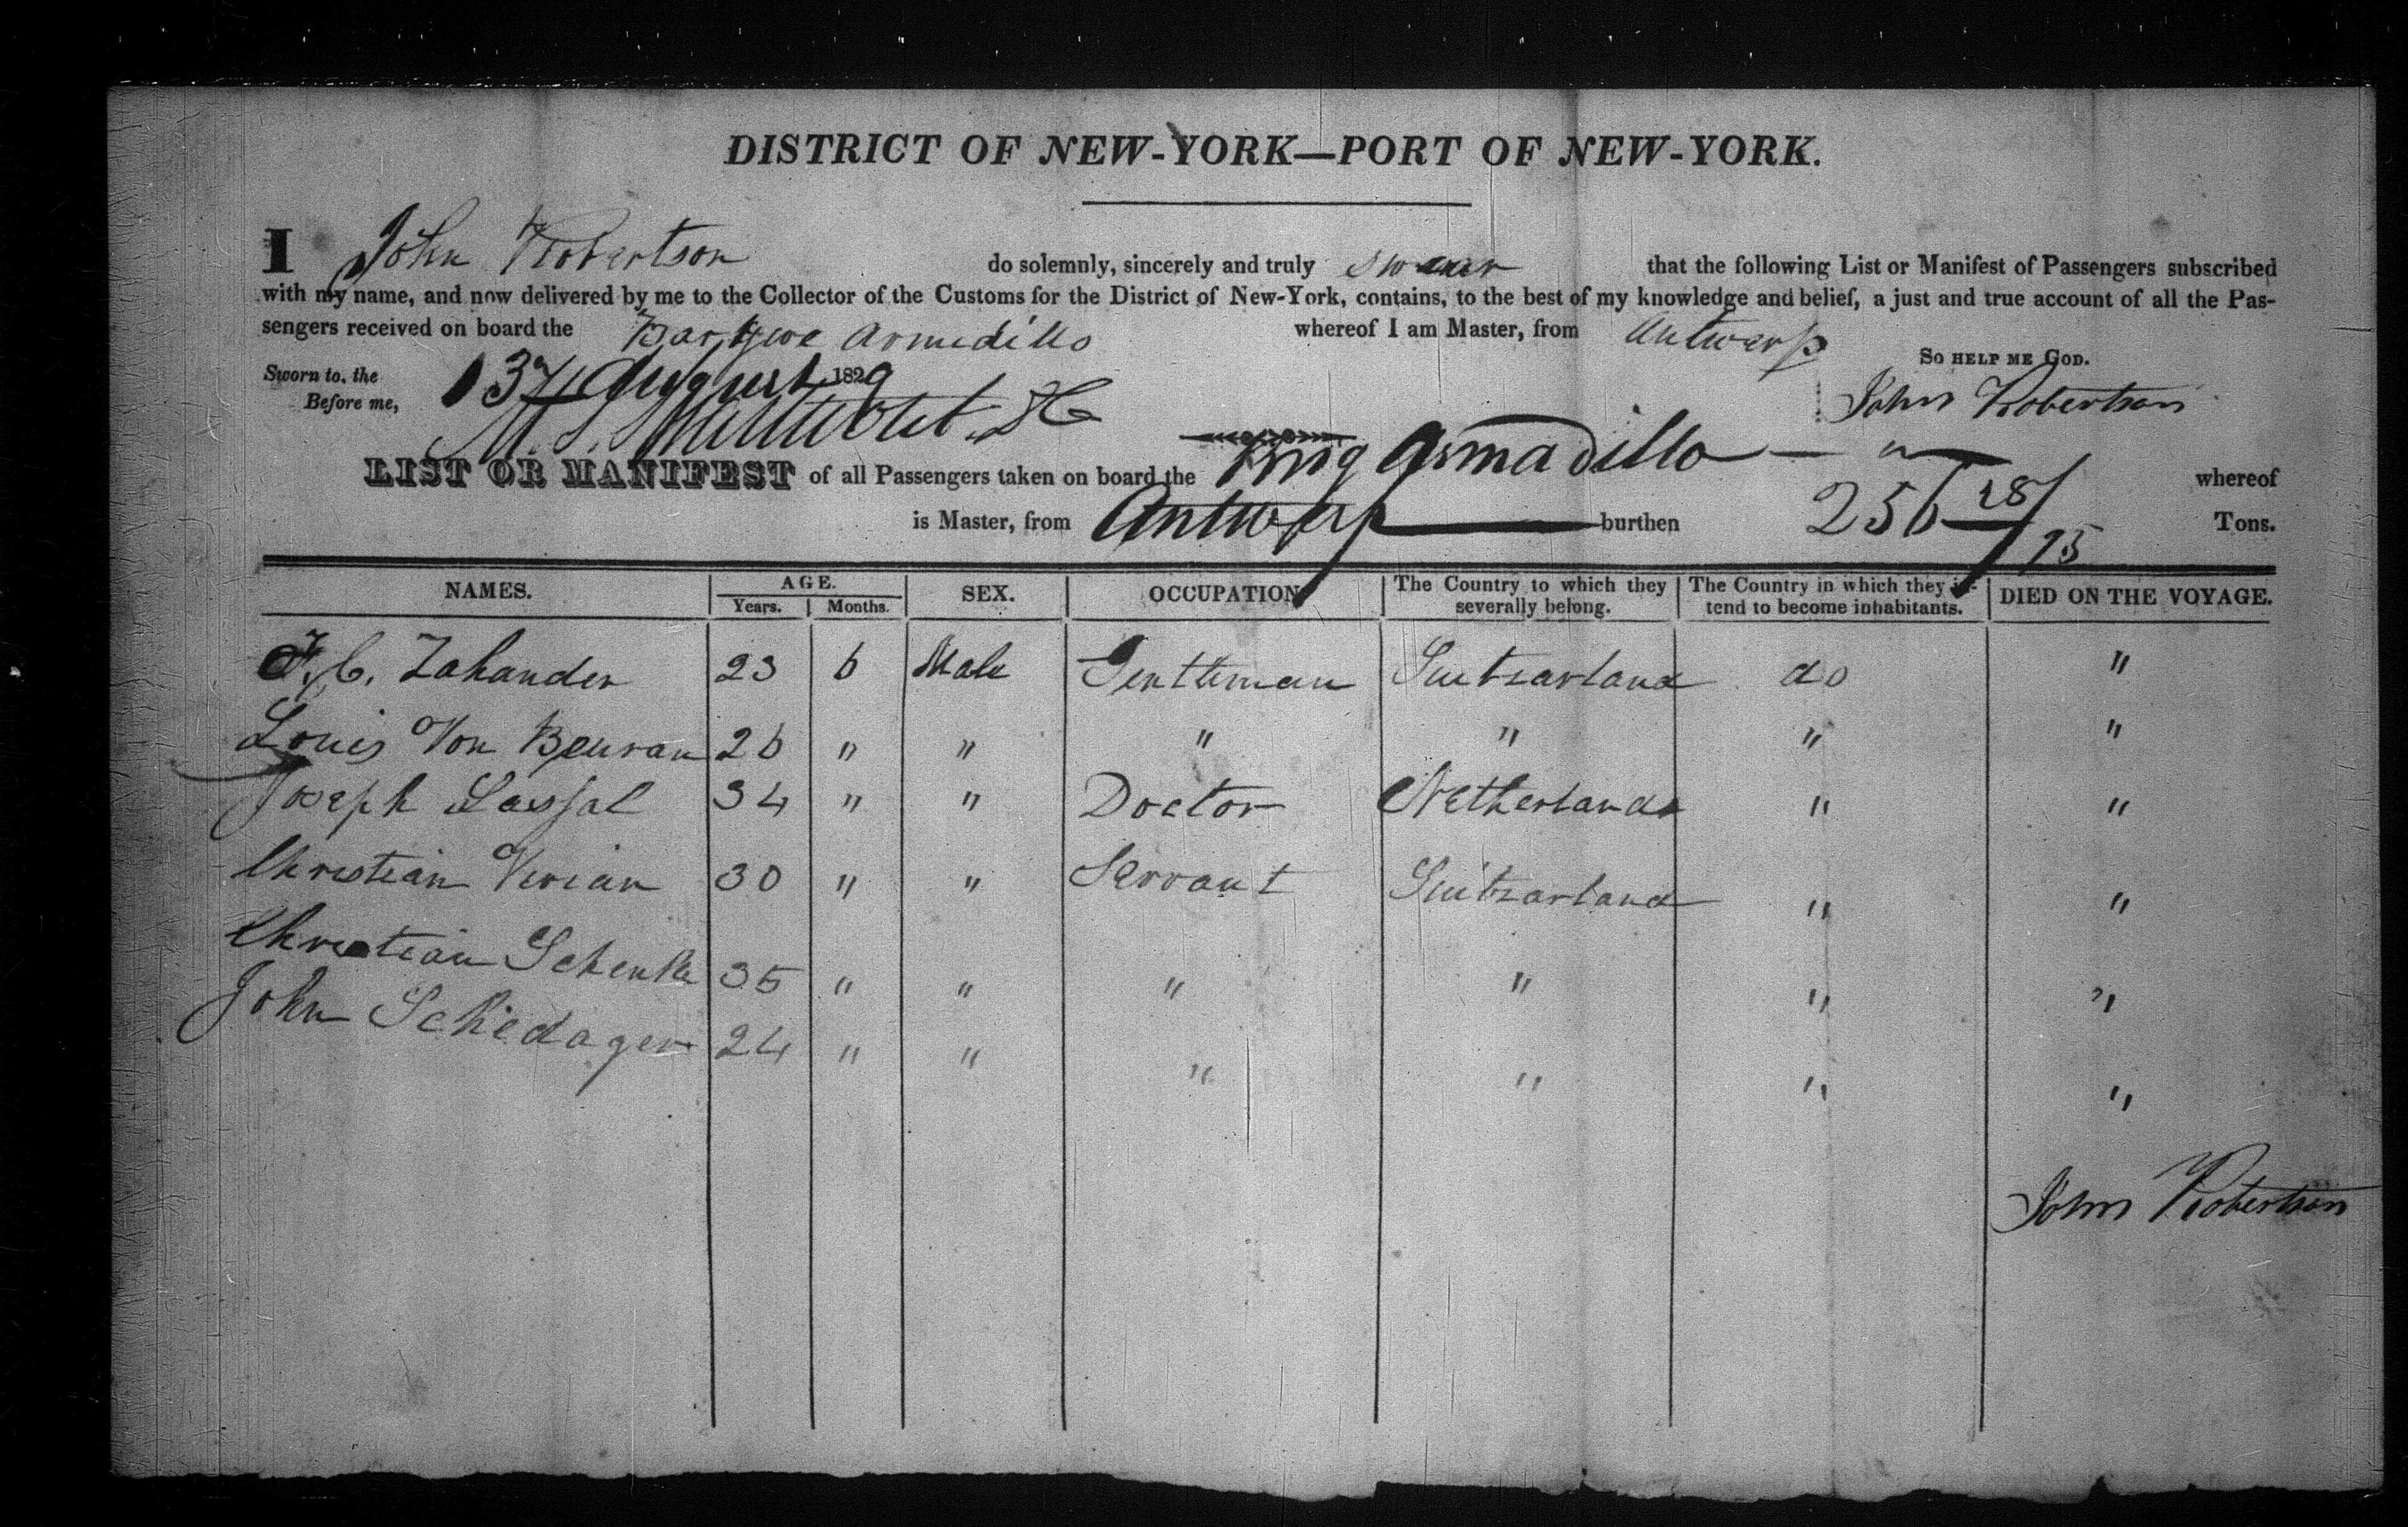 DISTRICT OF NEW-YORK—PORT OF NEW-YORK.
I John Robertson do solemnly, sincerely and truly swear that the following List or Manifest of Passengers subscribed
with my name, and now delivered by me to the Collector of the Customs for the District of New-York, contains, to the best of my knowledge and belief, a just and true account of all the Pas-
sengers received on board the Armedillo whereof I am Master, from Antwerp
So HELP ME GOD.
Sworn to, the 13th August 1829
Before me,
John Robertson
LIST OR MANIFEST of all Passengers taken on board the Brig Armadillo whereof
is Master, from Antwerp burthen 256 28/95 Tons.
NAMES. AGE. Years. Months. SEX. OCCUPATION The Country to which they severally belong. The Country in which they in- tend to become inhabitants. DIED ON THE VOYAGE.
J. C. Zahander 23 6 Male Gentleman Suitzarland do "
Louis Von Beuran 26 " " " " " "
Joseph Lassal 34 " " Doctor Netherlands " "
Christian Vivian 30 " " Servant Suitzarland " "
Christian Schenke 35 " " " " " "
John Schedager 24 " " " " " "
John Robertson